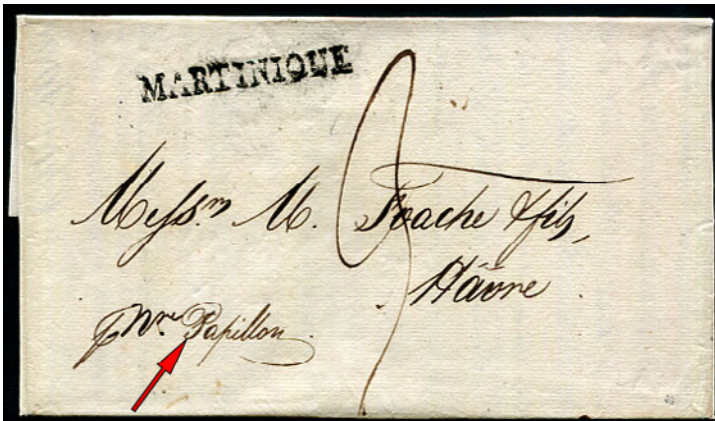 MARTINIQUE
3
Messrs M. Foache & fils,
Hâvre
p Nre Papillon.